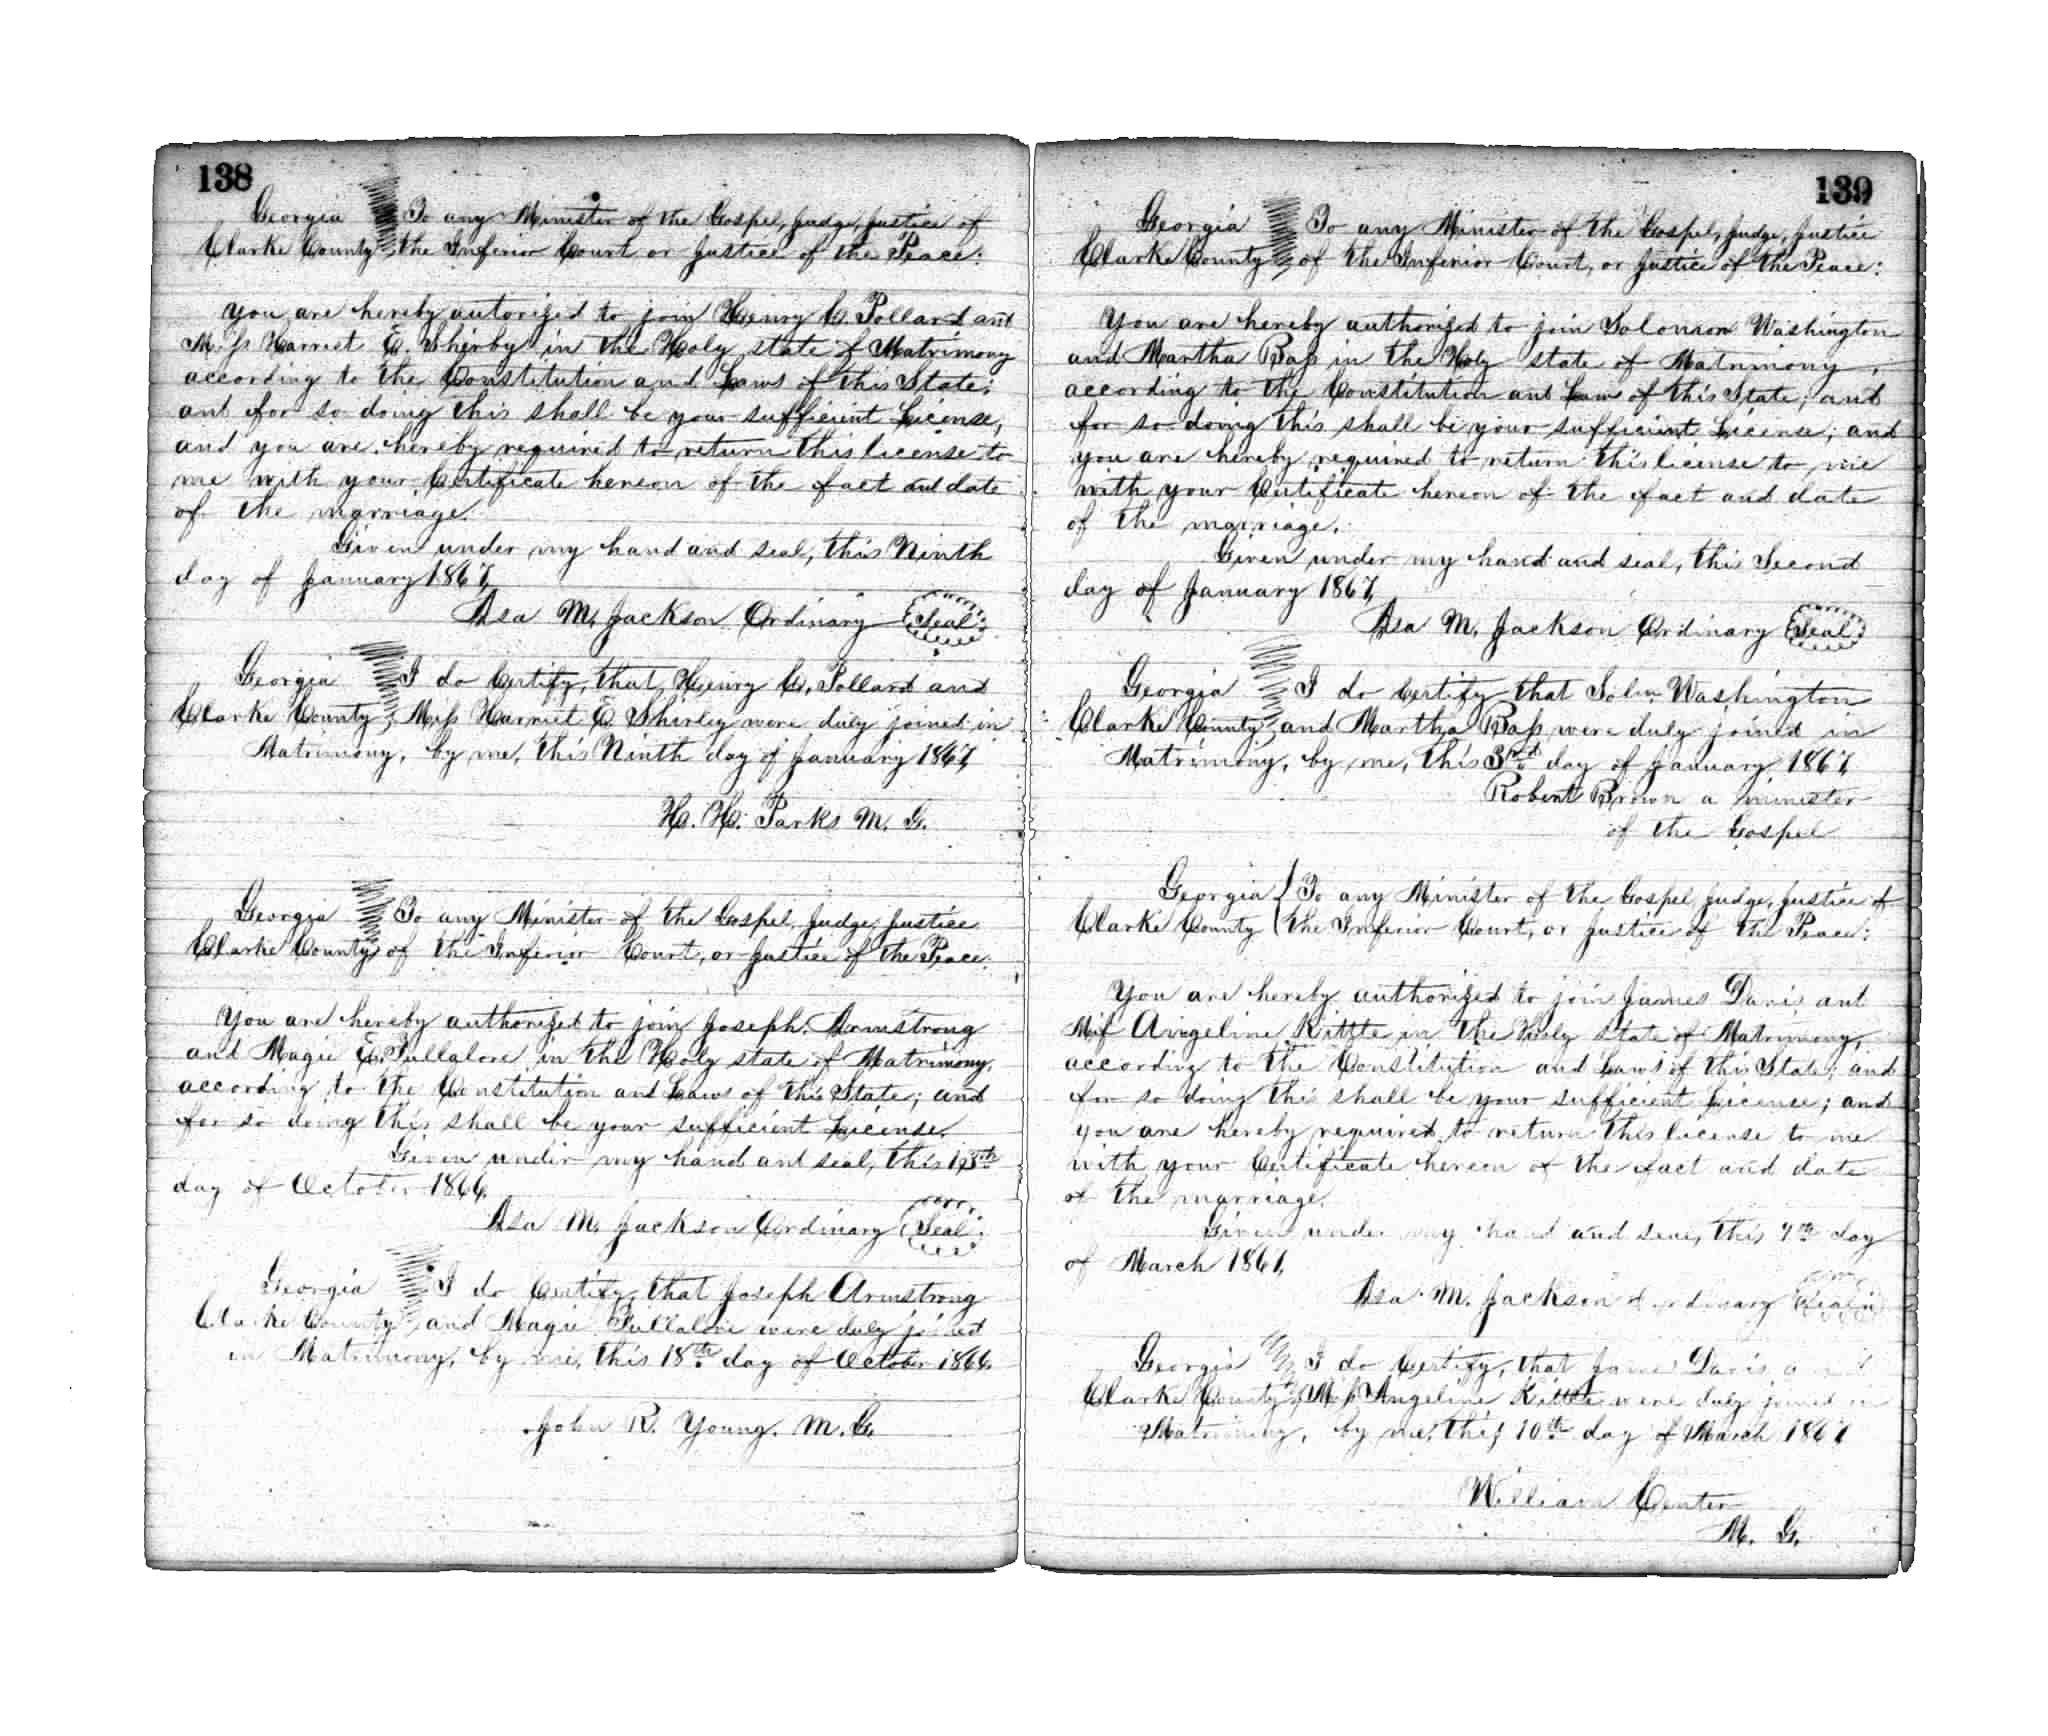 138
Georgia To any Minister of the Gospel, Judge, Justice of
Clarke County the Inferior Court or Justice of the Peace:
You are hereby autorized to join Henry C. Pollard and
Miss Harriet E. Shirby in the Holy state of Matrimony
according to the Constitution and Laws of this State;
and for so doing this shall be your sufficient License,
and you are hereby required to return this license to
me with your Certificate hereon of the fact and date
of the marriage.
Given under my hand and seal, this Ninth
day of January 1867,
Asa M. Jackson Ordinary Seal
Georgia I do Certify, that, Henry C. Pollard and
Clarke County Miss Harriet E. Shirley were duly joined in
Matrimony, by me, this Ninth day of January 1867,
H. H. Parks M. G.
Georgia To any Minister of the Gospel, Judge, Justice
Clarke County of the Inferior Court, or Justice of the Peace.
You are hereby authorized to join Joseph Armstrong
and Magie E. Tullalove in the Holy state of Matrimony,
according to the Constitution and Laws of this State; and
for so doing this shall be your sufficient License.
Given under my hand and seal, this
day of October 1866.
Asa M. Jackson Ordinary Seal
Georgia I do Certify, that Joseph Armstrong
Clarke County and Magie Tullalove were duly joined
in Matrimony, by me, this 18th day of October 1866.
John R. Young. M. G.
139
Georgia To any Minister of the Gospel, Judge, Justice
Clarke County of the Inferior Court, or Justice of the Peace:
You are hereby authorized to join Solomon Washington
and Martha Bass in the Holy state of Matrimony,
according to the Constitution and Laws of this State; and
for so doing this shall be your sufficient License; and
you are hereby required to return this license to me
with your Certificate hereon of the fact and date
of the marriage.
Given under my hand and seal, this Second
day of January 1867,
Asa M. Jackson Ordinary Seal
Georgia I do Certify that Solm. Washington
Clarke County and Martha Bass were duly joined in
Matrimony, by me, this 3rd day of January 1867,
Robert Brown a minister
of the Gospel
Georgia To any Minister of the Gospel Judge, Justice of
Clarke County the Inferior Court, or Justice of the Peace:
You are hereby authorized to join James Davis and
Miss Angeline Kittle in the Holy State of Matrimony,
according to the Constitution and Laws of this State; and
for so doing this shall be your sufficient License; and
you are hereby required to return this license to me
with your Certificate hereon of the fact and date
of the marriage.
Given under my hand and seal, this 9th day
of March 1867,
Asa M. Jackson Ordinary Seal
Georgia I do Certify, that James Davis and
Clarke County Miss Angeline Kittle were duly joined in
Matrimony, by me, this 10th day of March 1867
William Center
M. G.